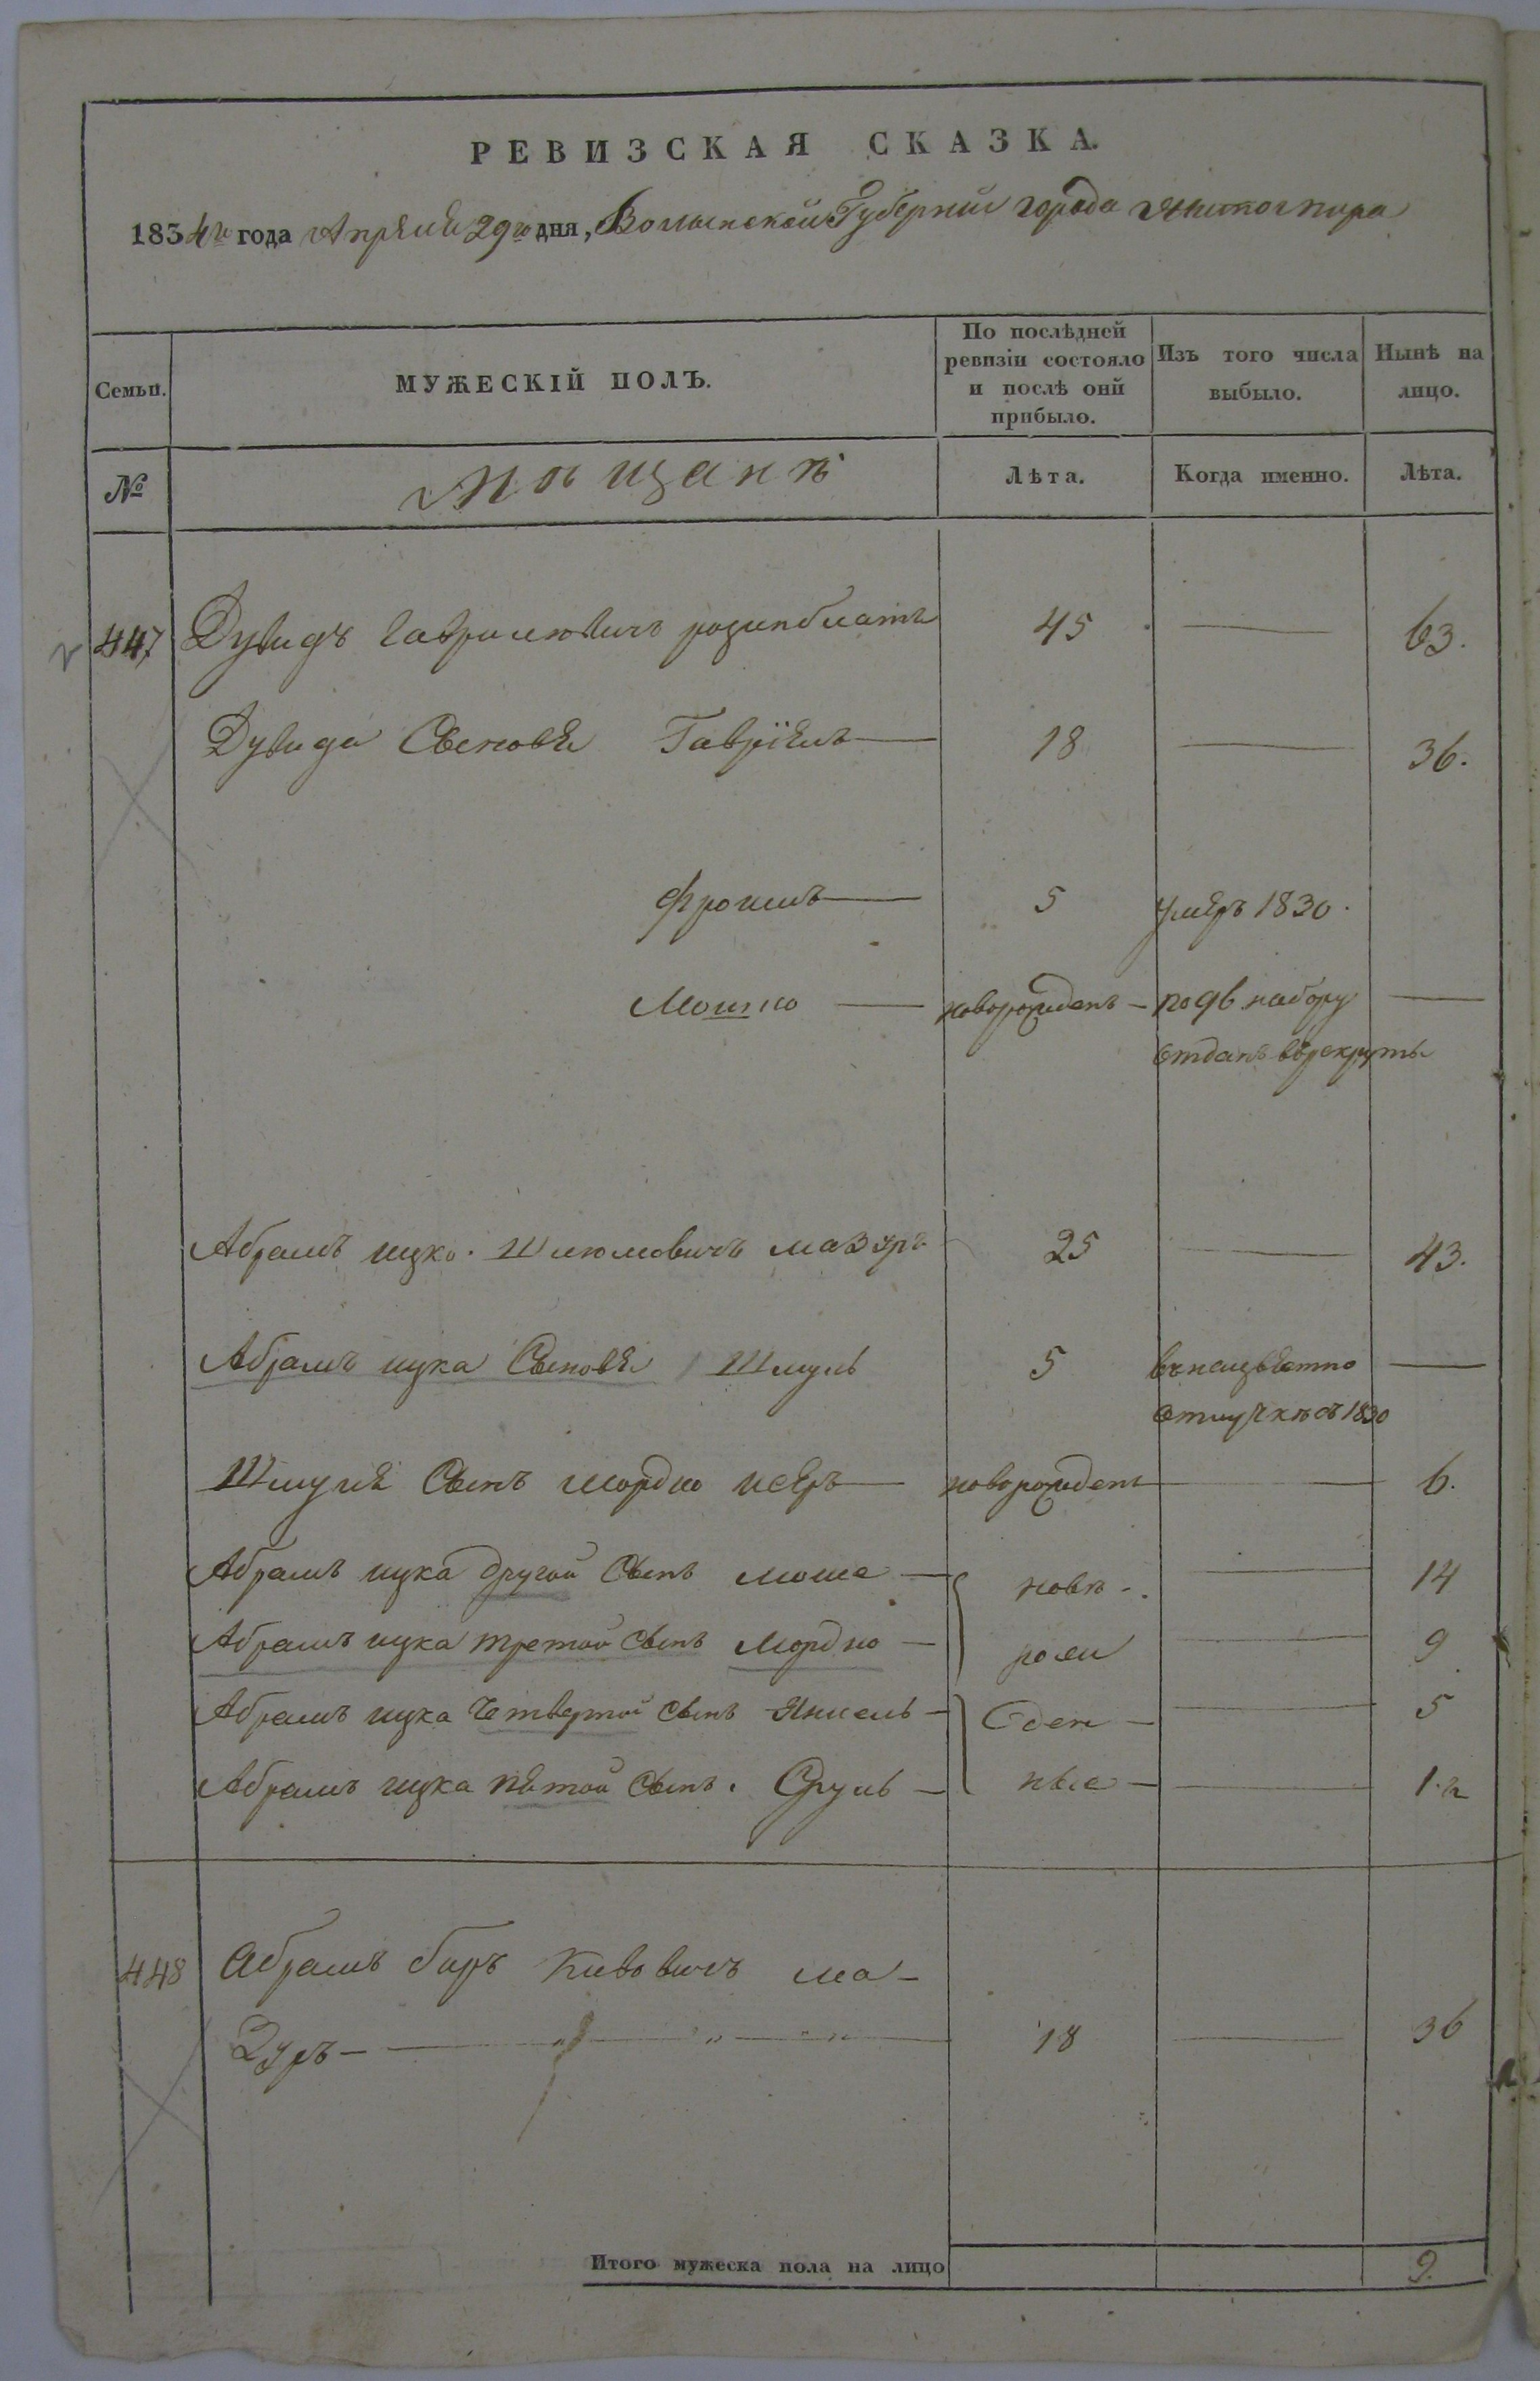 РЕВИЗСКАЯ СКАЗКА.
1834го года Апреля 29го дня, Волынской Губернии города Житомира
Семьи.
МУЖЕСКІЙ ПОЛЪ.
По послѣдней ревизіи состояло и послѣ оній прибыло.
Изъ того числа выбыло.
Нынѣ на лицо.
№
Мѣщанѣ
Лѣта.
Когда именно.
Лѣта.
447 Дувидъ Гаврилювичъ розинблатъ 45 63.
Дувида Сыновя Гавріилъ 18 36.
Фроимъ 5 умеръ 1830.
Мошко новорожденъ по 96 набору
отданъ врекруты
Абрамъ ицко Шлюмовичъ мазуръ 25 43.
Абрамъ ицка Сыновя Шмуль 5 внеизвестно
отлучкѣ съ 1830
Шмуля Сынъ мордко исеръ новорожденъ 6.
Абрамъ ицка другой Сынъ моше новъ 14
Абрамъ ицка третой Сынъ Мордко рож 9
Абрамъ ицка Четвертой Сынъ Янкель ден 5
Абрамъ ицка пятой Сынъ. Сруль ные 1.г
448 Абрамъ беръ Кивовичъ ма-
зуръ 18 36
Итого мужеска пола на лицо 9.